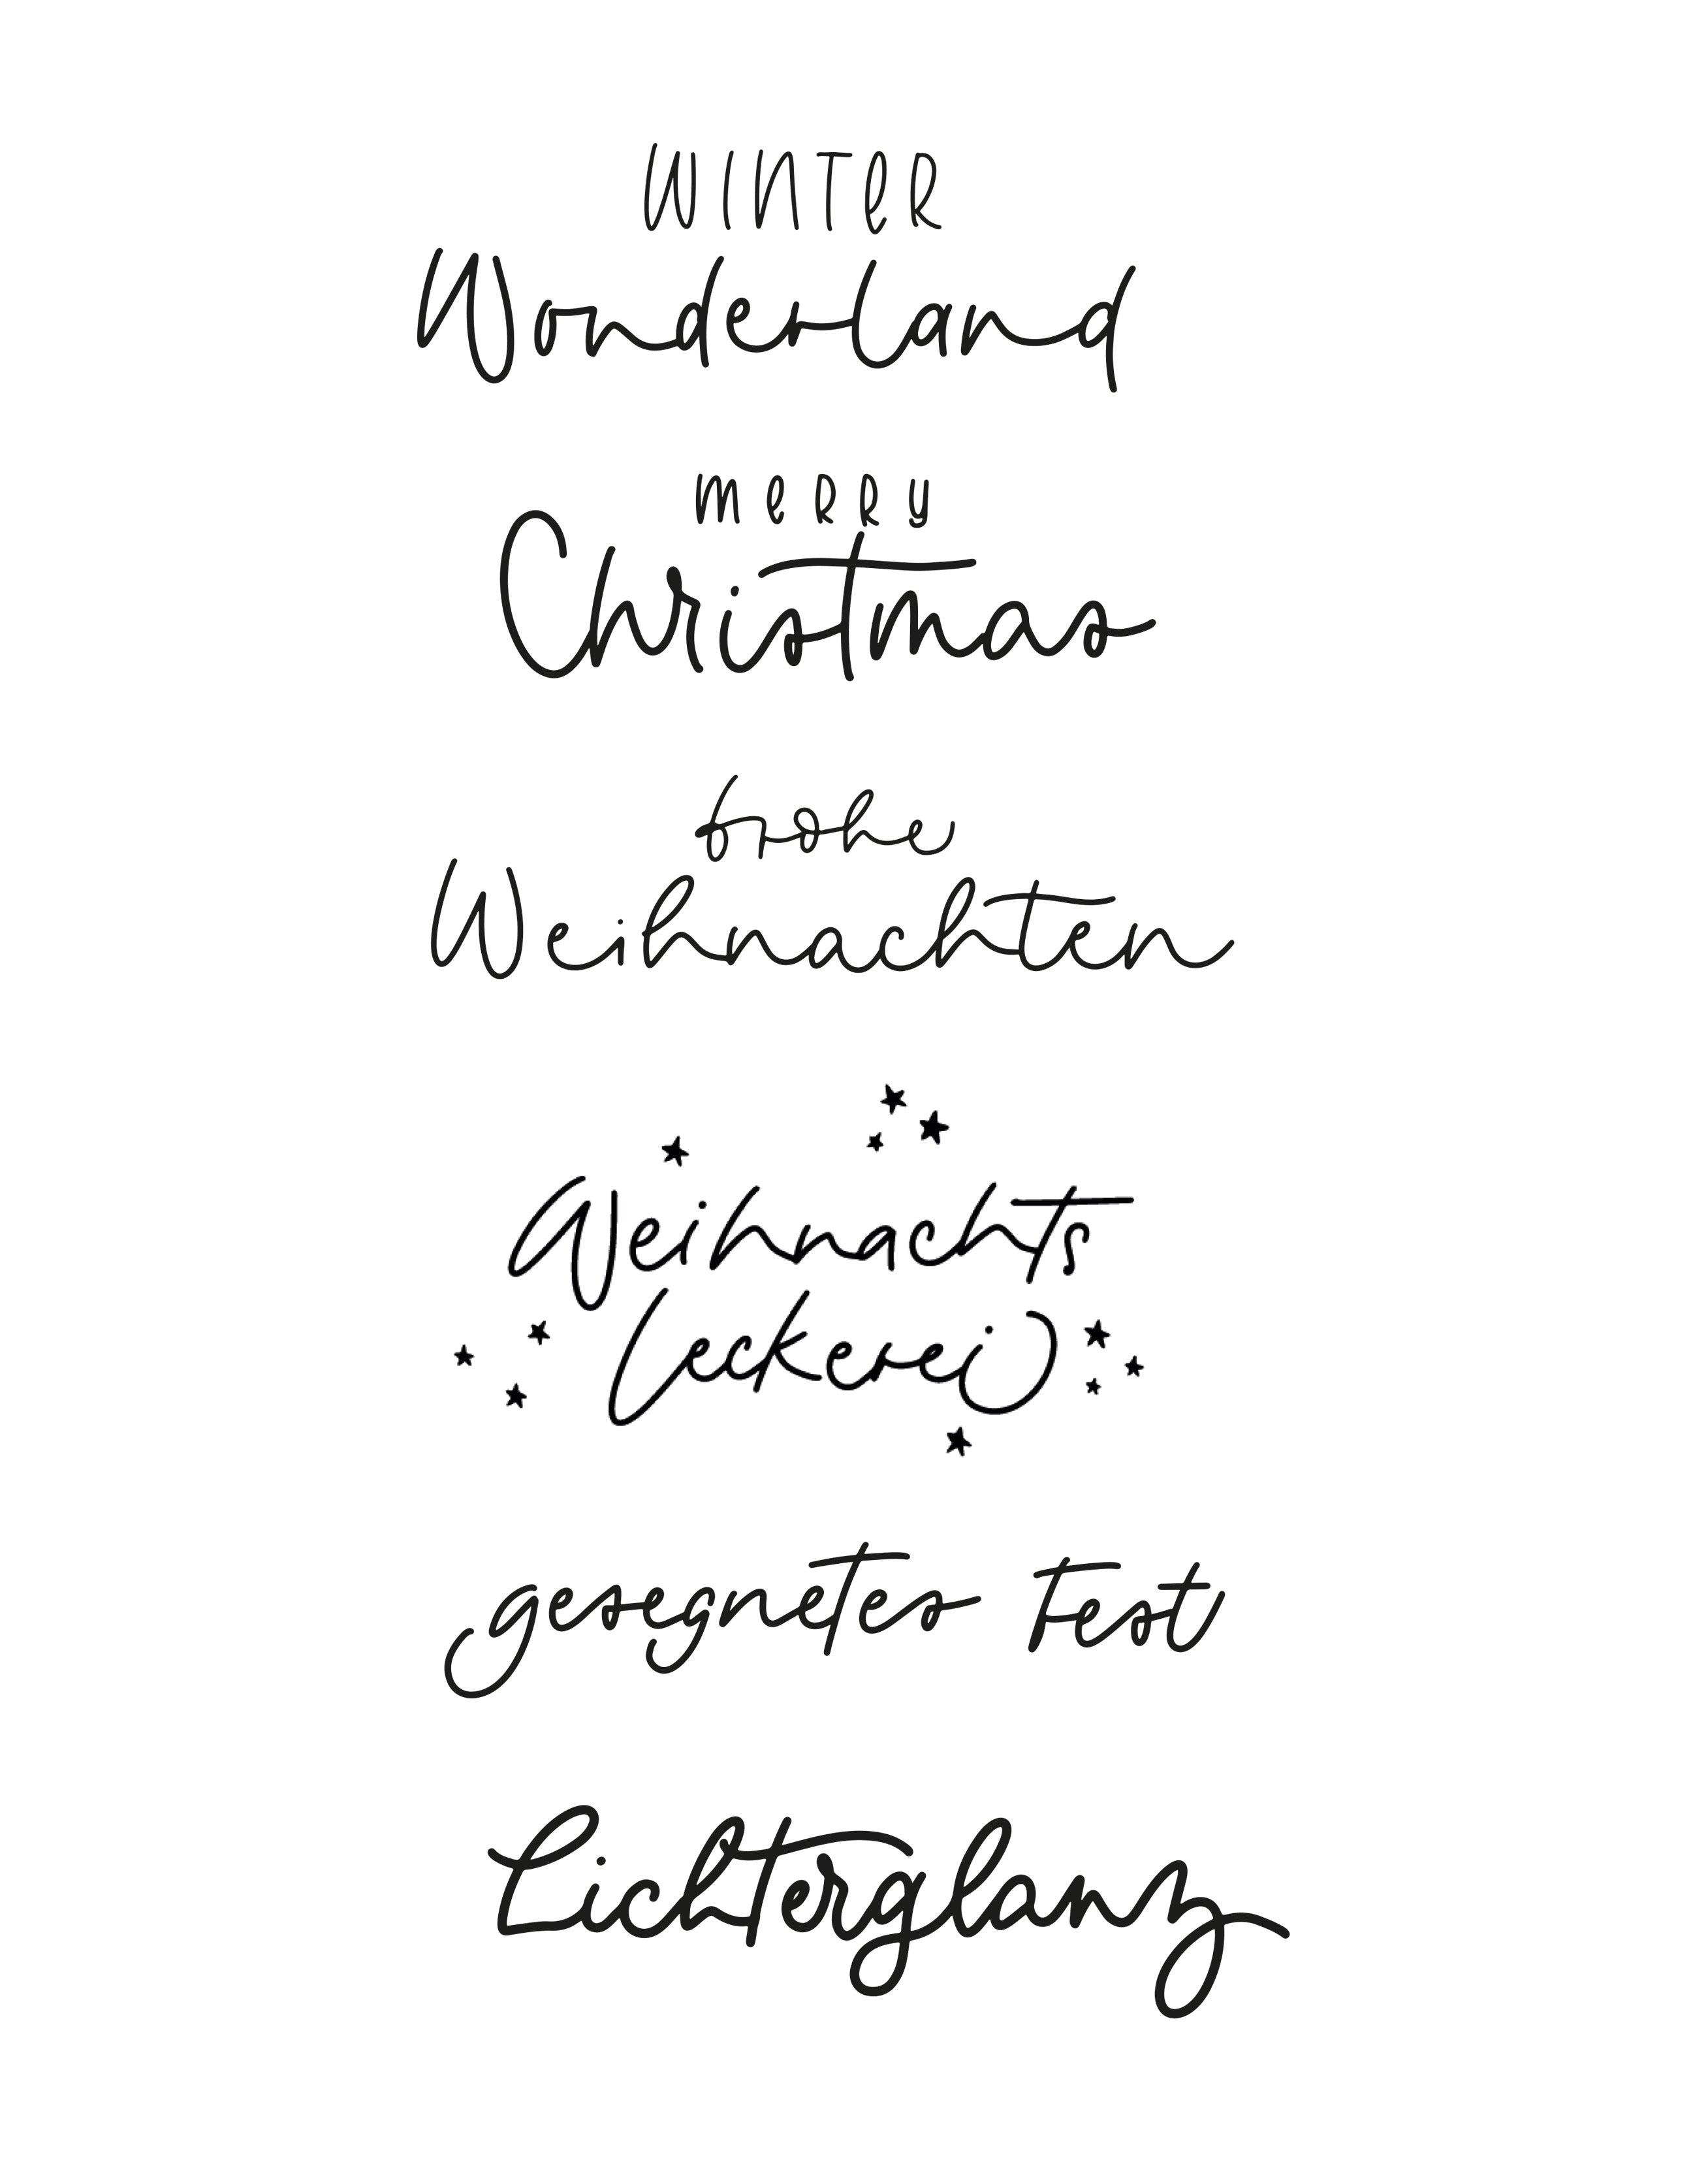 WINTeR
Wonderland
meRRy
Christmas
frohe
Weihnachten
Weihnachts
leckerei
gesegnetes Fest
Lichterglanz